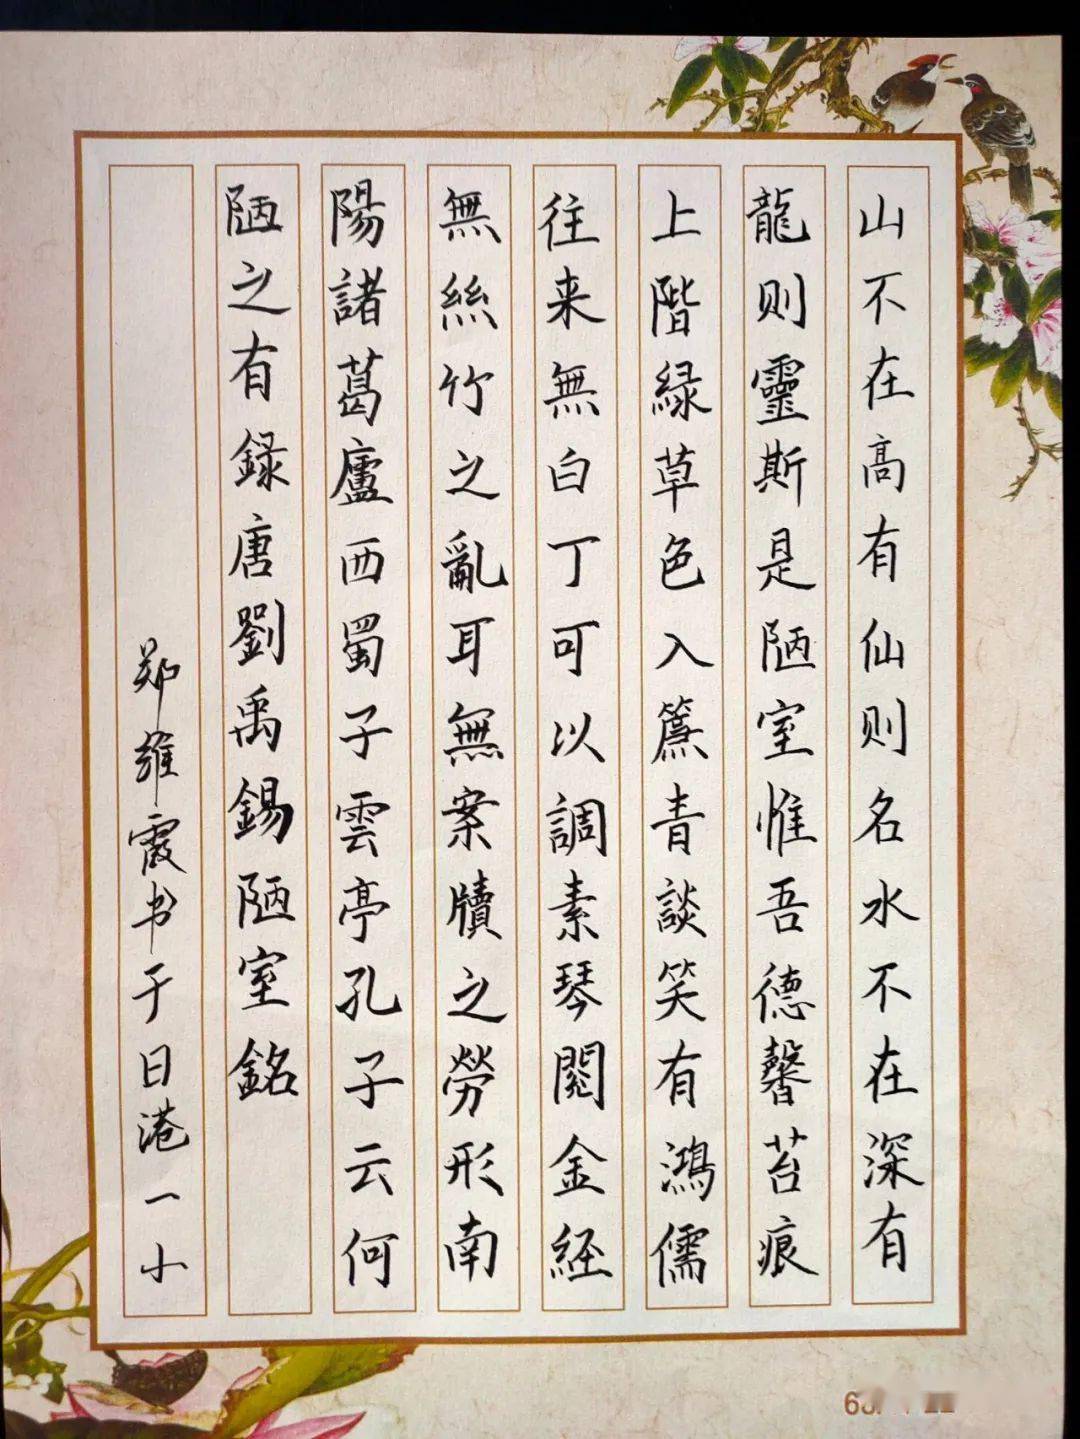 山不在高有仙则名水不在深有
龍则靈斯是陋室惟吾德馨苔痕
上階緑草色入簾青談笑有鴻儒
往来無白丁可以調素琴閱金経
無絲竹之亂耳無案牘之勞形南
陽諸葛廬西蜀子雲亭孔子云何
陋之有録唐劉禹錫陋室銘
郑維霞书于日港一小